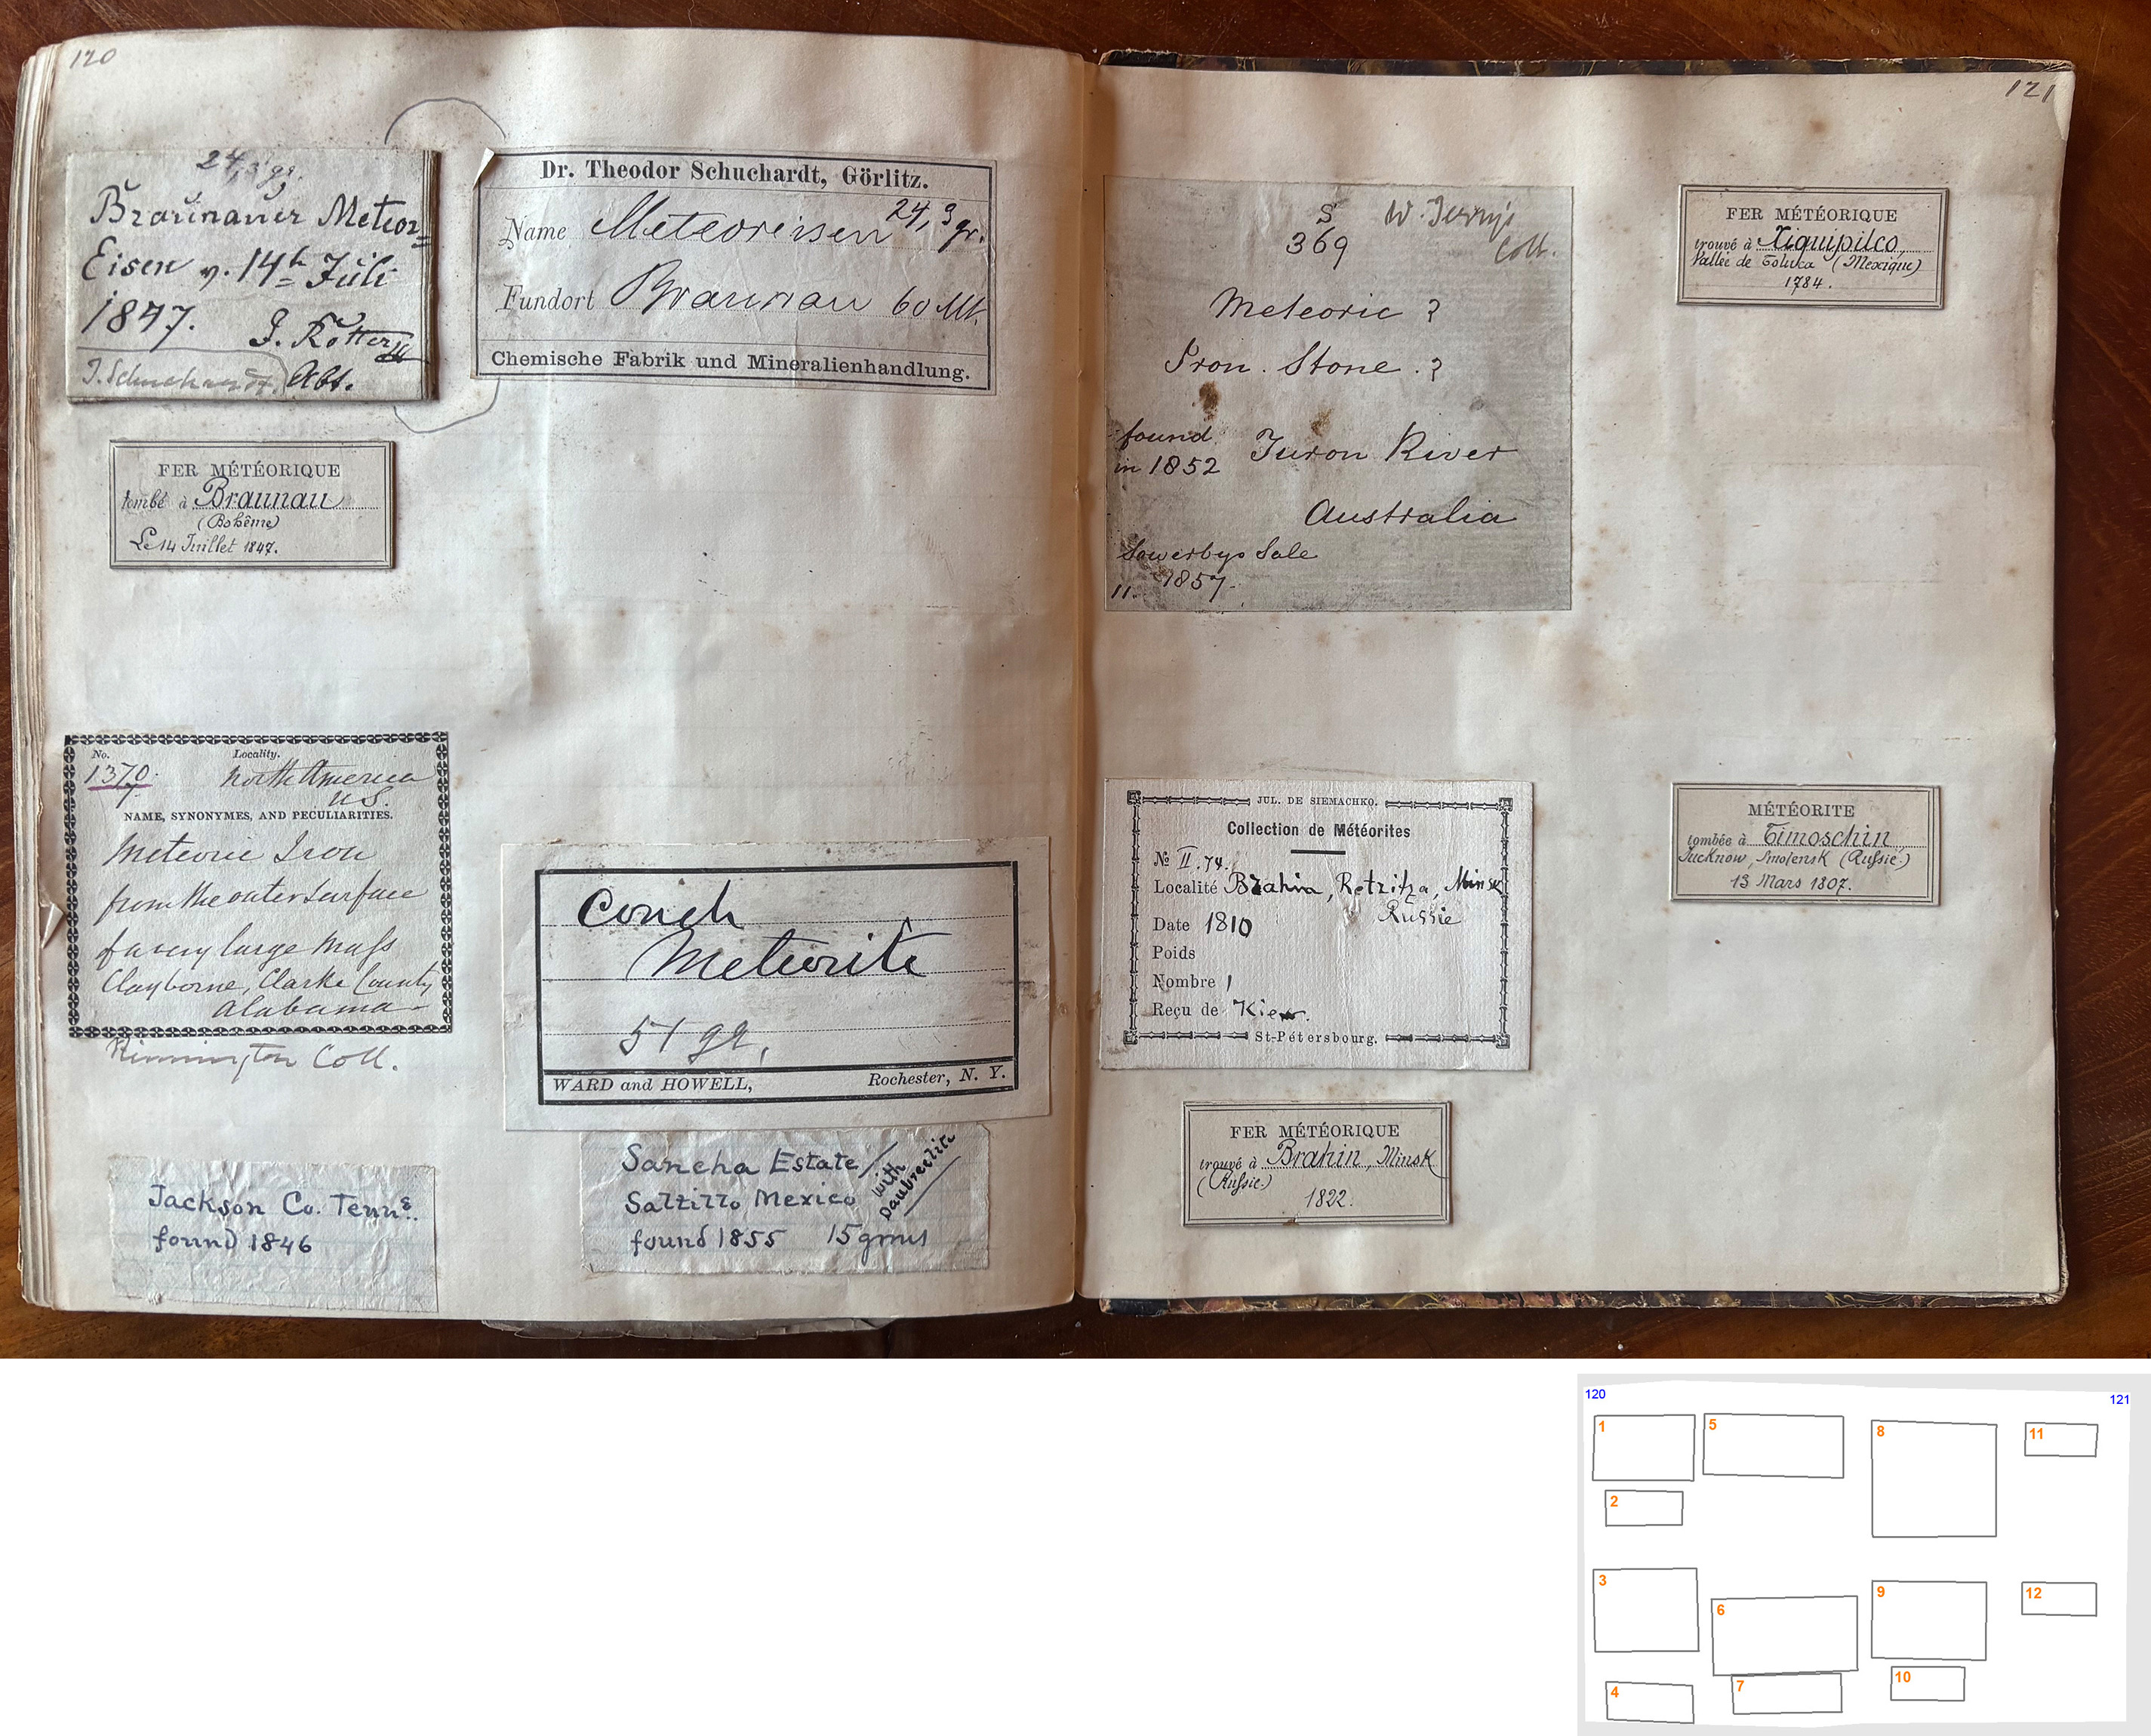 120
24,3 gr.
Braŭnaŭer Meteor=
Eisen v. 14t Jŭli
1847. J. Rotter
J. Schuchardt. Abt.
Dr. Theodor Schuchardt, Görlitz.
Name Meteoreisen 24,3 gr.
Fundort Braunau 60 Mk.
Chemische Fabrik und Mineralienhandlung.
FER MÉTÉORIQUE
tombé à Braunau
(Bohême)
Le 14 Juillet 1847.
No. Locality.
1370. North America
7 U.S.
NAME, SYNONYMES, AND PECULIARITIES.
Meteoric Iron
from the outer surface
of a very large Mass
Clayborne, Clarke County
Alabama
Coll.
Couch
Meteorite
51 gr.
WARD and HOWELL, Rochester, N. Y.
Jackson Co. Tenns.
found 1846
Sancha Estate
Saltillo, Mexico
found 1855 15 grms
with
Daubreelite
121
S W. Jerry's
369 Coll.
Meteoric ?
Iron. Stone. ?
found
in 1852 Turon River
Australia
Sowerbys Sale
1857.
11.
FER MÉTÉORIQUE
trouvé à Xiquipilco,
Vallée de Toluca (Mexique)
1784.
JUL. DE SIEMACHKO.
Collection de Météorites
№ II.74.
Localité Brahin, Retzitza, Minsk
Russie
Date 1810
Poids
Nombre 1
Reçu de Kiew.
St-Pétersbourg.
MÉTÉORITE
tombée à Timoschin
Jucknow, Smolensk (Russie.)
13 Mars 1807.
FER MÉTÉORIQUE
trouvé à Brahin, Minsk
(Russie.)
1822.
120
121
1
5
8
11
2
3
6
9
12
4
7
10